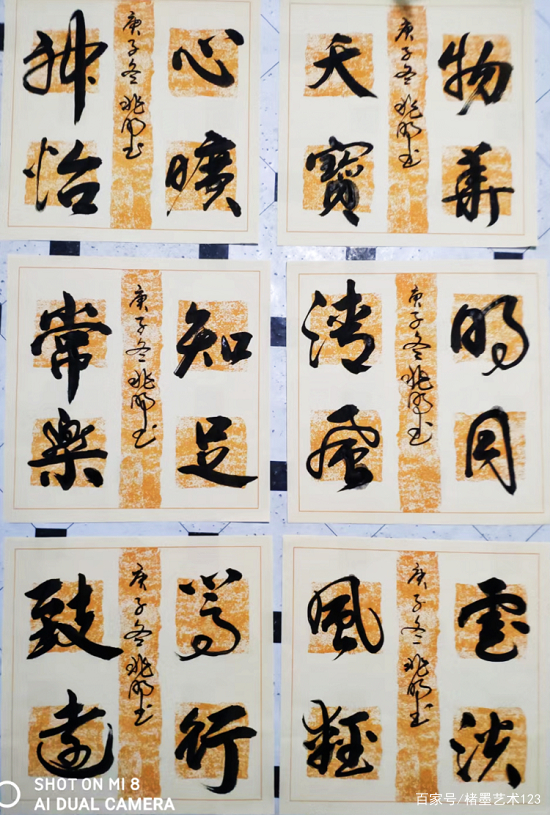 心曠
庚子冬兆明书
神怡
物華
庚子冬兆明书
天寶
知足
庚子冬兆明书
常樂
明月
庚子冬兆明书
清风
笃行
庚子冬兆明书
致遠
雲淡
庚子冬兆明书
風輕
SHOT ON MI 8
AI DUAL CAMERA
百家号/楮墨艺术123